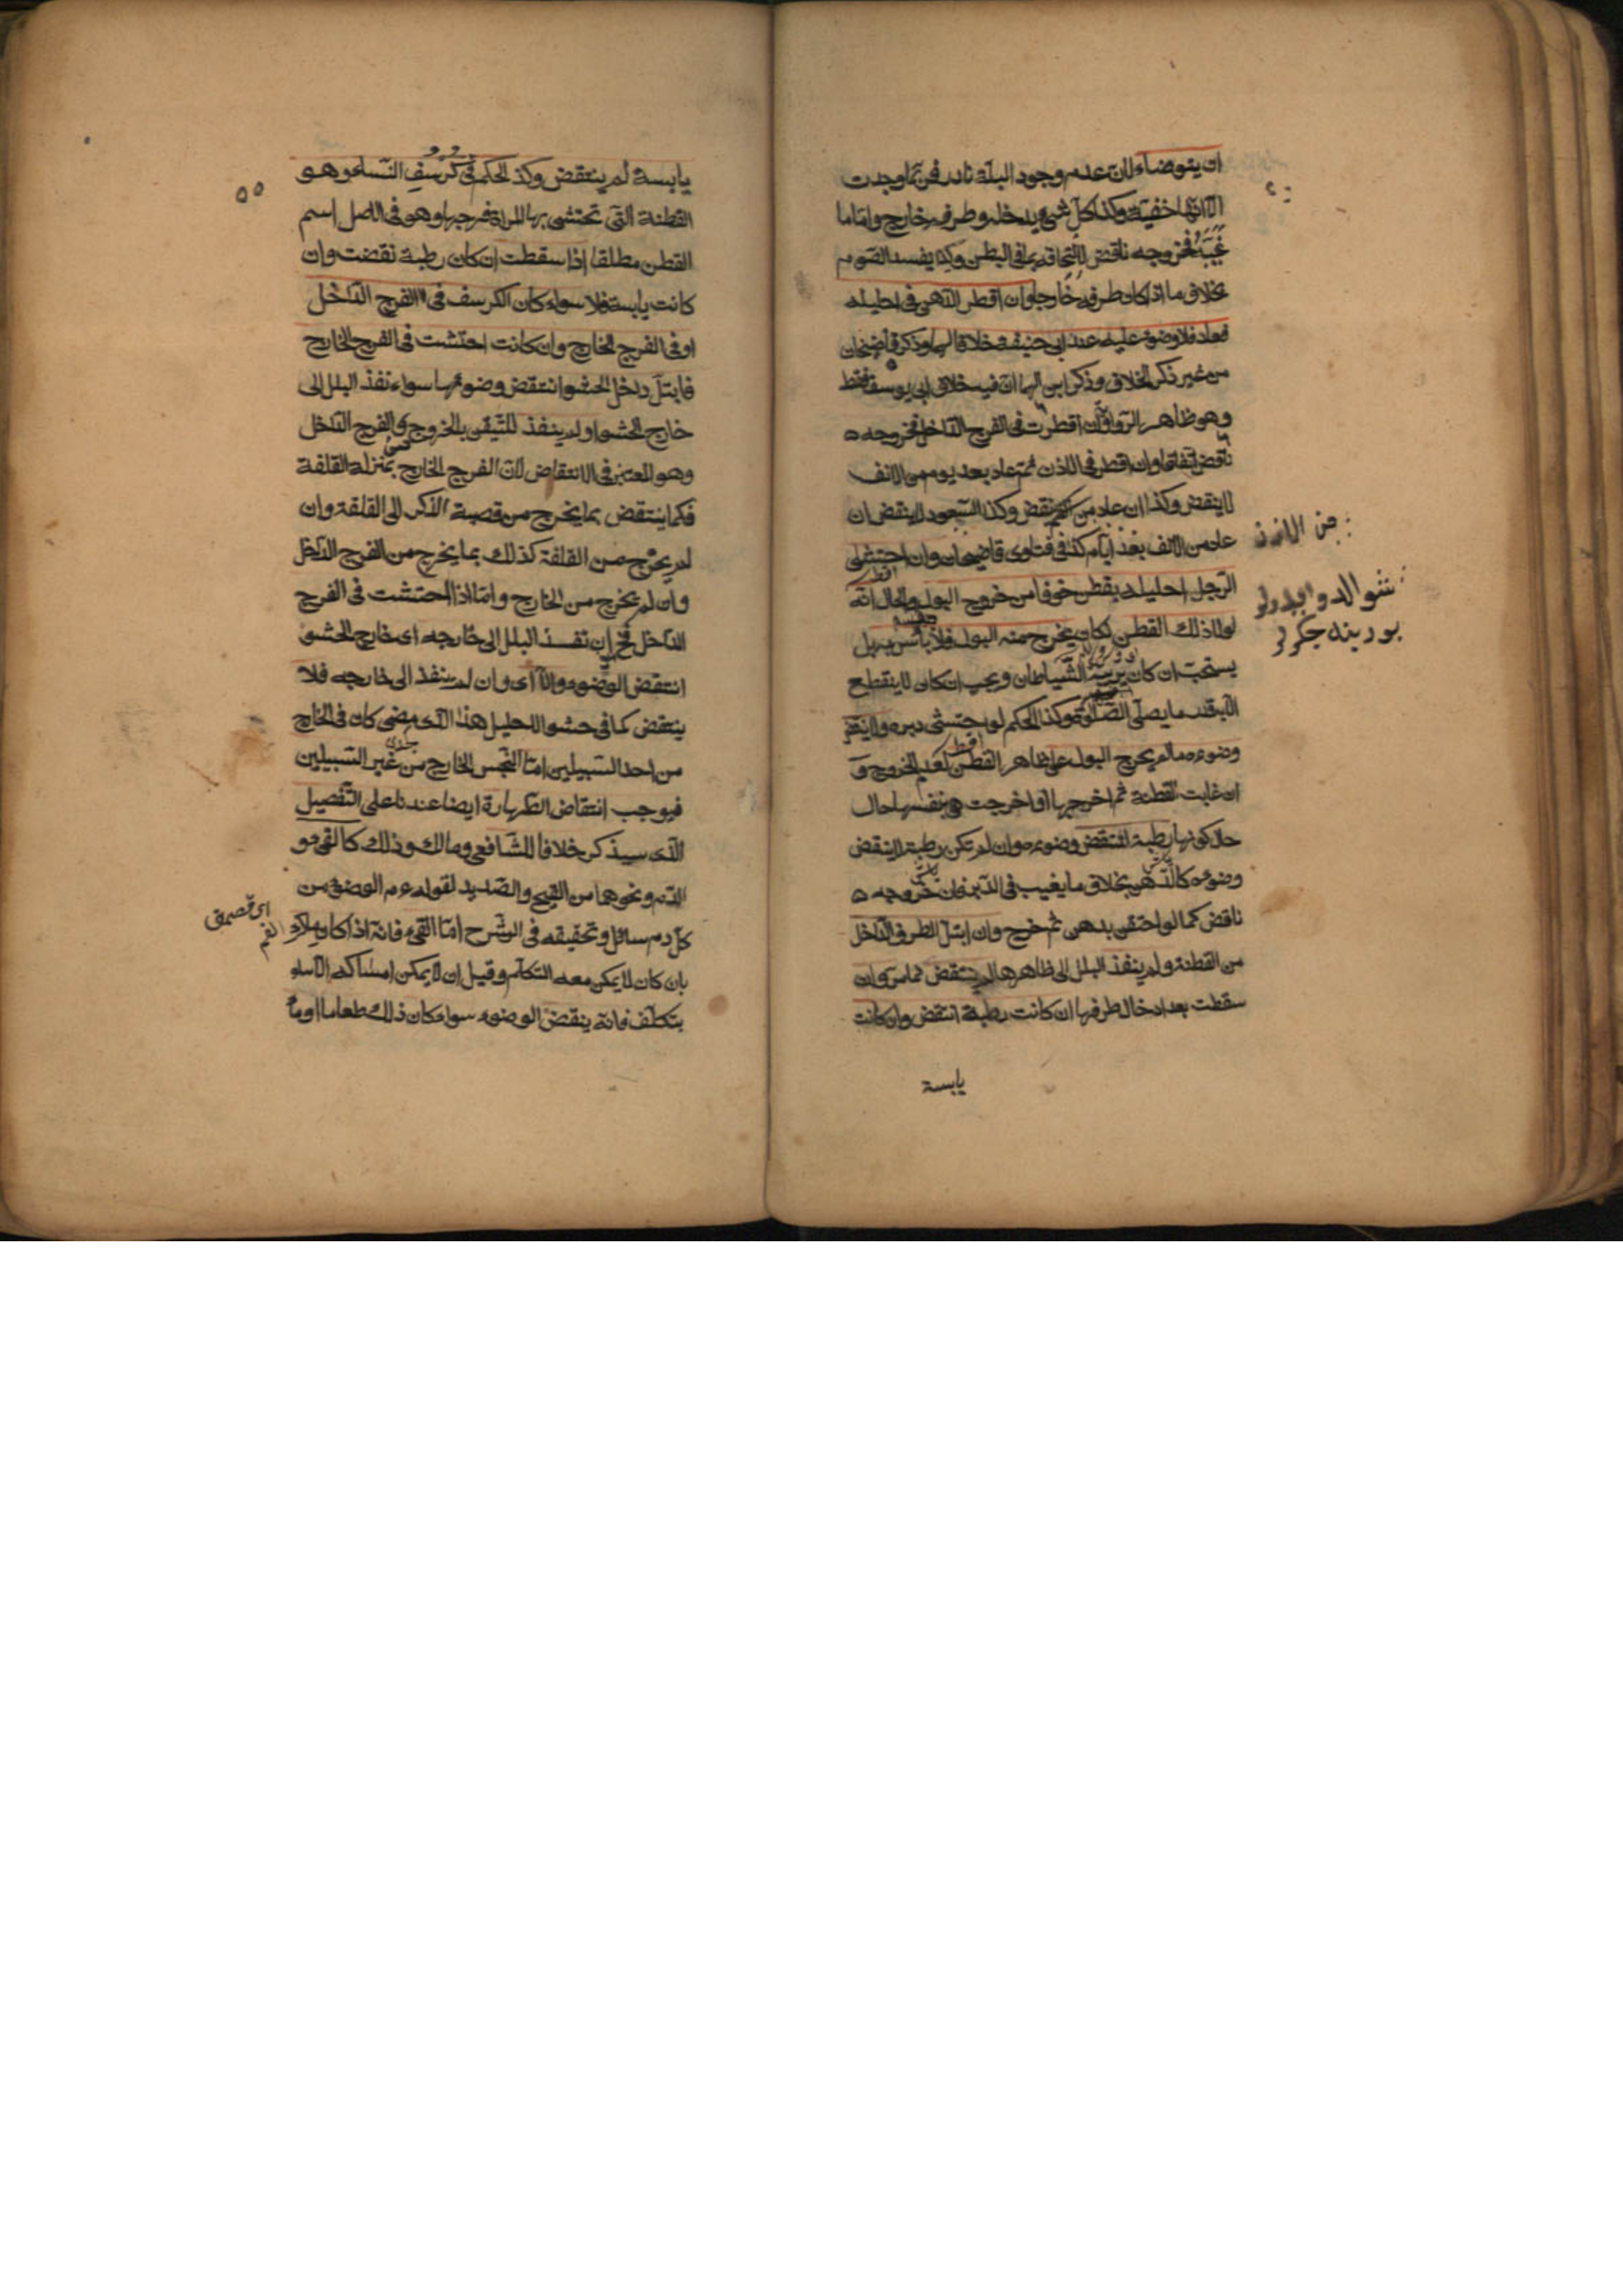 ان يتوضاء لان عدم وجود البلة نادر فربما وجدت
الا انها خفيت وكذا كل شيء يدخله وطرفه خارج واما ما
غيبه فخروجه ناقض لالتحاقه بما في البطن وكذا يفسد الصوم
بخلاف ما اذا كان طرفه خارجا وان اقطر الدهن في احليله
فعاد فلا وضوء عليه عند ابي حنيفة خلافا لهما وذكر قاضيخان
من غير ذكر الخلاف وذكر ابن الهمام ان فيه خلاف ابي يوسف فقط
وهو ظاهر الرواية وان اقطرت في الفرج الداخل فخروجه
ناقض اتفاقا وان اقطر في الاذن ثم عاد بعد يوم من الانف
لا ينقض وكذا ان عاد من الفم ينقض وكذا السعوط لا ينقض ان
عاد من الانف بعد ايام كذا في فتاوى قاضيخان وان احتشى
الرجل احليله بقطن خوفا من خروج البول والحال انه
لولا ذلك القطن لكان يخرج منه البول فلا بأس به بل
يستحب ان كان يريبه الشيطان ويجب ان كان لا ينقطع
الا بقدر ما يصلي الصلوة وكذا الحكم لو احتشى دبره ولا ينقض
وضوءه ما لم يخرج البول على ظاهر القطن لعدم الخروج و
ان غابت القطنة ثم اخرجها او اخرجت هي بنفسها حال
حال كونها رطبة انتقض وضوءه وان لم تكن رطبة لا ينقض
وضوءه كالدهن بخلاف ما يغيب في الدبر فان خروجه
ناقض كما لو احتقن بدهن ثم خرج وان ابتل الطرف الداخل
من القطنة ولم ينفذ البلل الى ظاهرها لم ينتقض لما مر وان
سقطت بعد ادخال طرفها ان كانت رطبة انتقض وان كانت
يابسة
من الاذن
٥٥
يابسة لم ينتقض وكذ الحكم في كرسف النساء وهو
القطنة التي تحتشى بها المراة فرجها وهو في الاصل اسم
القطن مطلقا اذا سقطت ان كان رطبة نقضت وان
كانت يابسة فلا سواء كان الكرسف في الفرج الداخل
او في الفرج الخارج وان كانت احتشت في الفرج الخارج
فابتل داخل الحشو انتقض وضوءها سواء نفذ البلل الى
خارج الحشو او لم ينفذ للتيقن بالخروج من الفرج الداخل
وهو المعتبر في الانتقاض لان الفرج الخارج بمنزلة القلفة
فكما ينتقض بما يخرج من قصبة الذكر الى القلفة وان
لم يخرج من القلفة كذلك بما يخرج من الفرج الداخل
وان لم يخرج من الخارج واما اذا احتشت في الفرج
الداخل فح ان نفذ البلل الى خارجه اى خارج الحشو
انتقض الوضوء والا اى وان لم ينفذ الى خارجه فلا
ينتقض كما في حشو الاحليل هذا الذى مضى كان في الخارج
من احد السبيلين اما النجس الخارج من غير السبيلين
فيوجب انتقاض الطهارة ايضا عندنا على التفصيل
الذى سيذكر خلافا للشافعي ومالك وذلك كالقيء و
الدم ونحوهما من القيح والصديد لقوله عم الوضوء من
كل دم سائل وتحقيقه في الشرح اما القيء فانه اذا كان ملاء
بان كان لا يمكن معه التكلم وقيل ان لا يمكن امساكه الا
بتكلف فانه ينقض الوضوء سواء كان ذلك طعاما او ماء
الفم